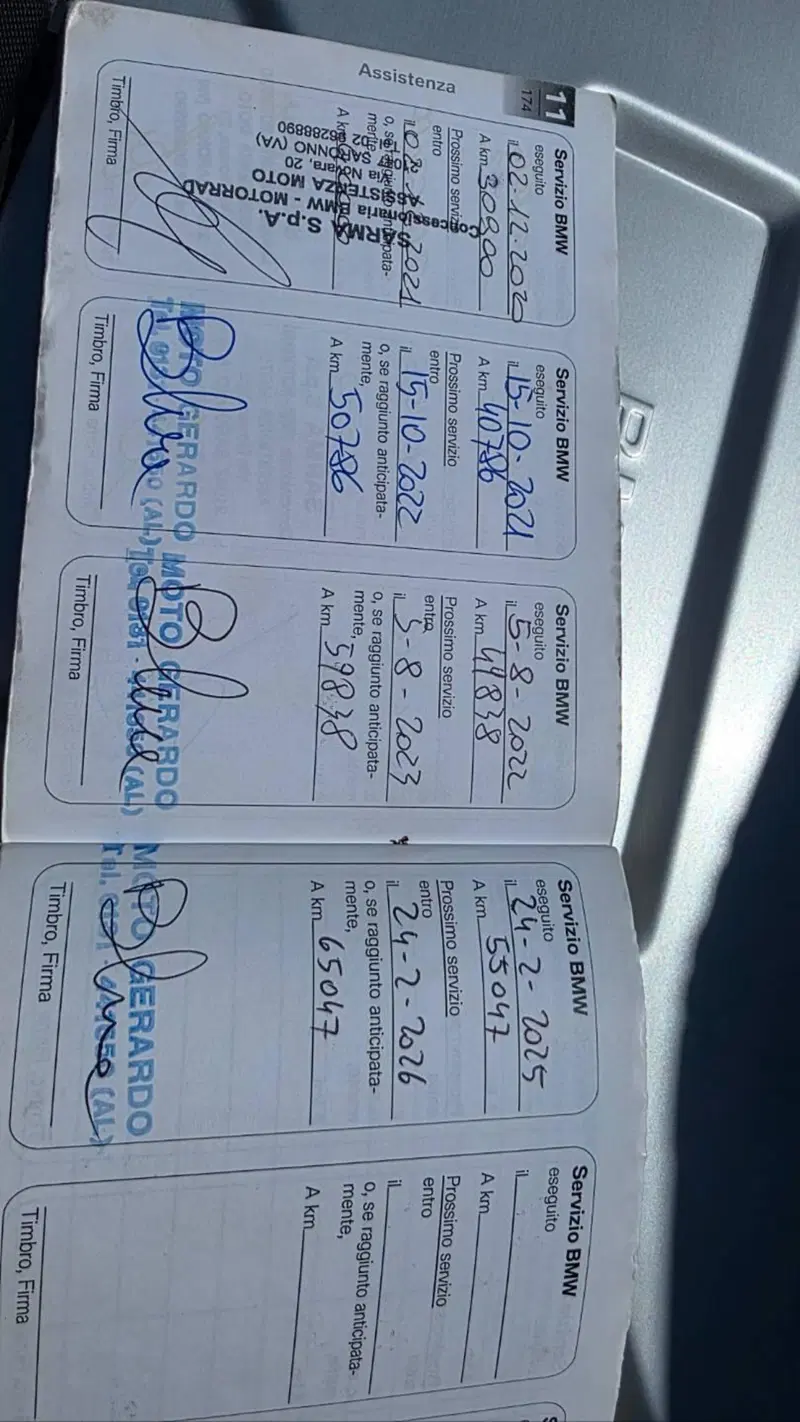 11
174
Assistenza
Servizio BMW
eseguito
il 02.12.2020
A km 30900
Prossimo servizio
entro
il 2021
o, se raggiunto anticipata-
mente,
A km
SARMA S.p.A.
Concessionaria BMW - MOTORRAD
ASSISTENZA MOTO
Via Novara, 20
SARONNO (VA)
Timbro, Firma
Servizio BMW
eseguito
il 15-10-2021
A km 40786
Prossimo servizio
entro
il 15-10-2022
o, se raggiunto anticipata-
mente,
A km 50786
MOTO GERARDO
(AL)
Timbro, Firma
Servizio BMW
eseguito
il 5-8-2022
A km 49838
Prossimo servizio
entro
il 5-8-2023
o, se raggiunto anticipata-
mente,
A km 59838
MOTO GERARDO
Tel. 0131 - (AL)
Timbro, Firma
Servizio BMW
eseguito
il 24-2-2025
A km 55047
Prossimo servizio
entro
il 24-2-2026
o, se raggiunto anticipata-
mente,
A km 65047
MOTO GERARDO
Tel. 0131 - (AL)
Timbro, Firma
Servizio BMW
eseguito
il
A km
Prossimo servizio
entro
il
o, se raggiunto anticipata-
mente,
A km
Timbro, Firma